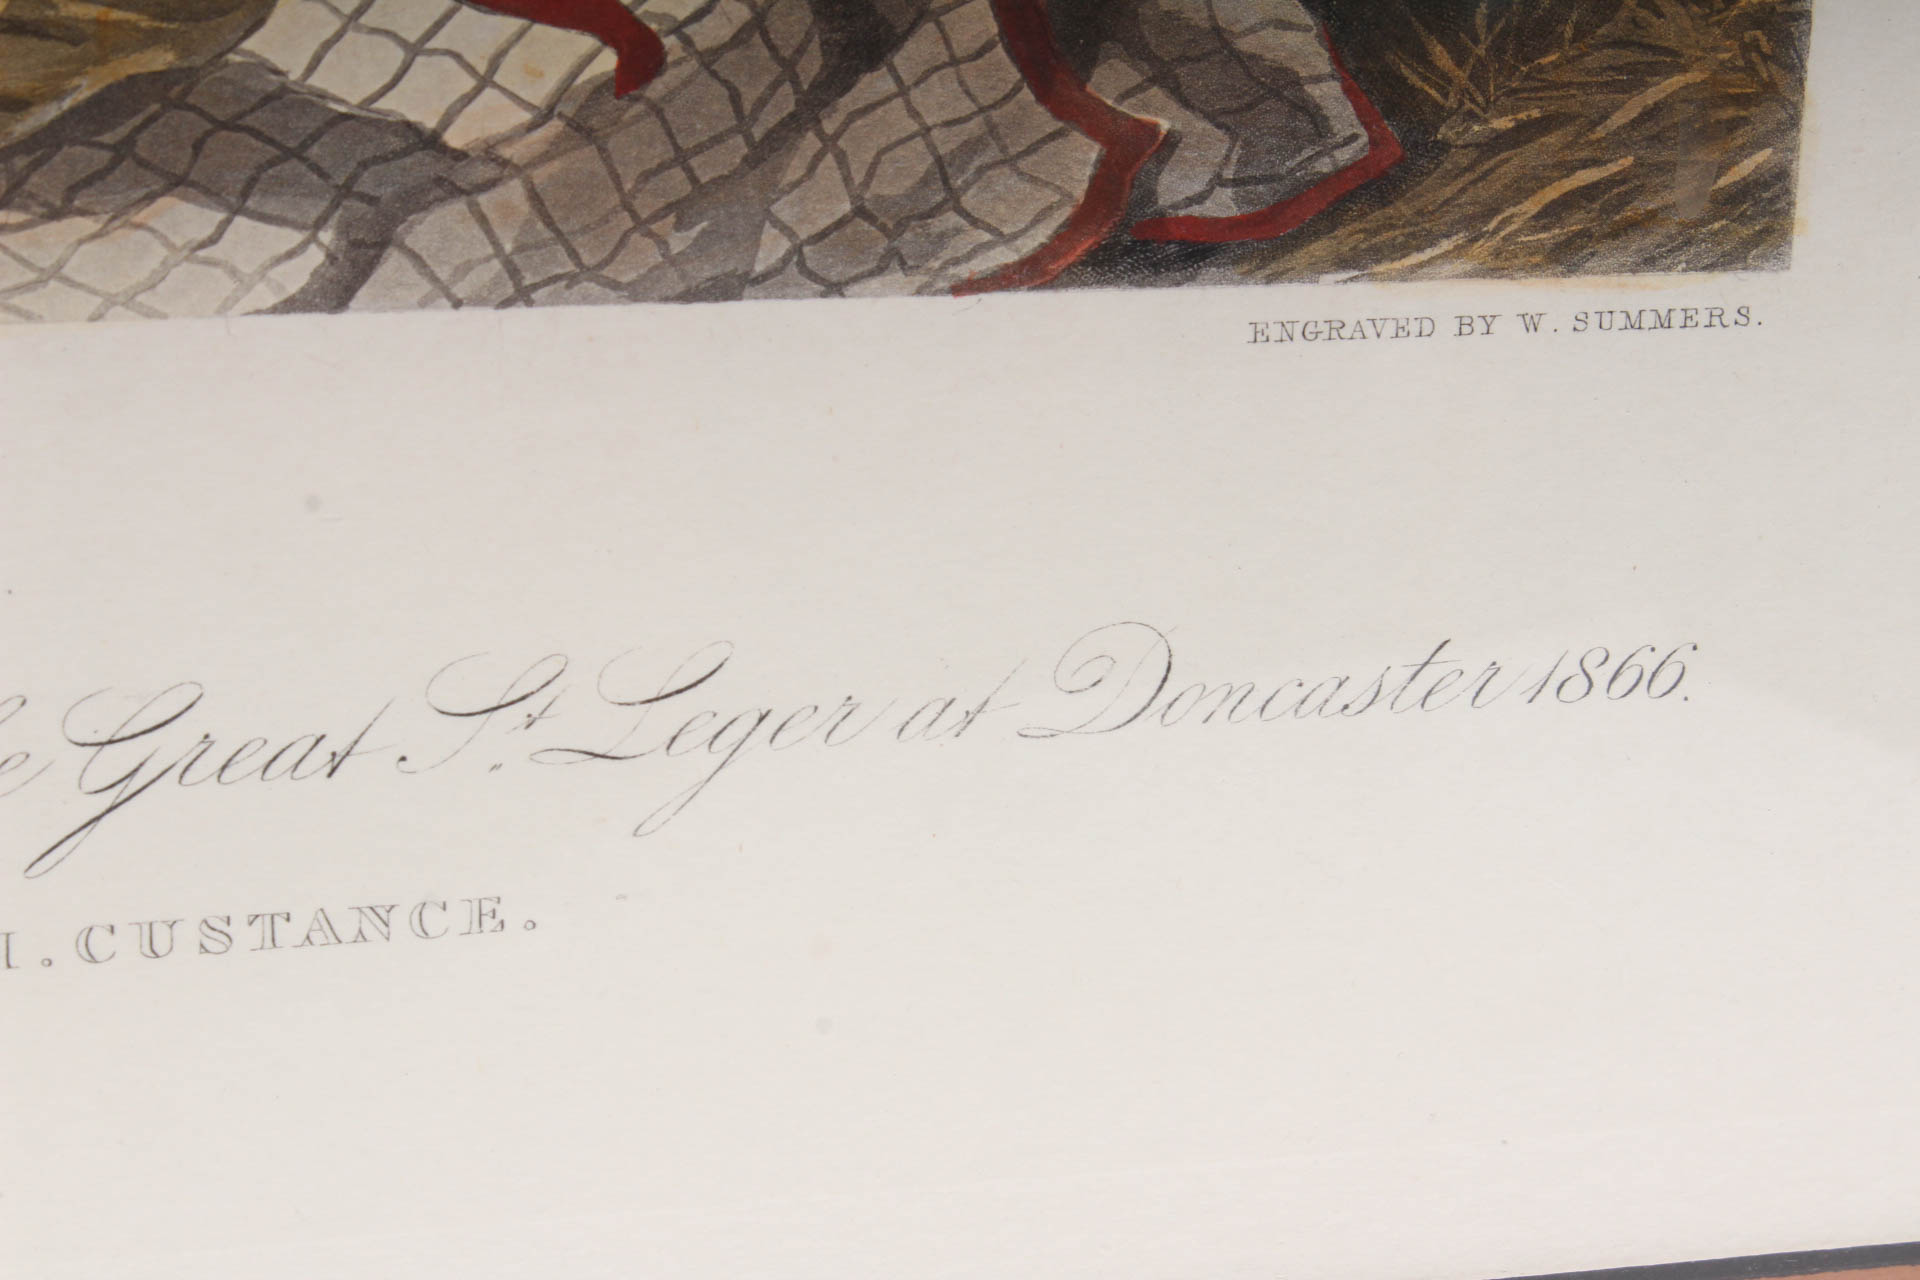 ENGRAVED BY W. SUMMERS.
Great St. Leger at Doncaster 1866.
CUSTANCE.